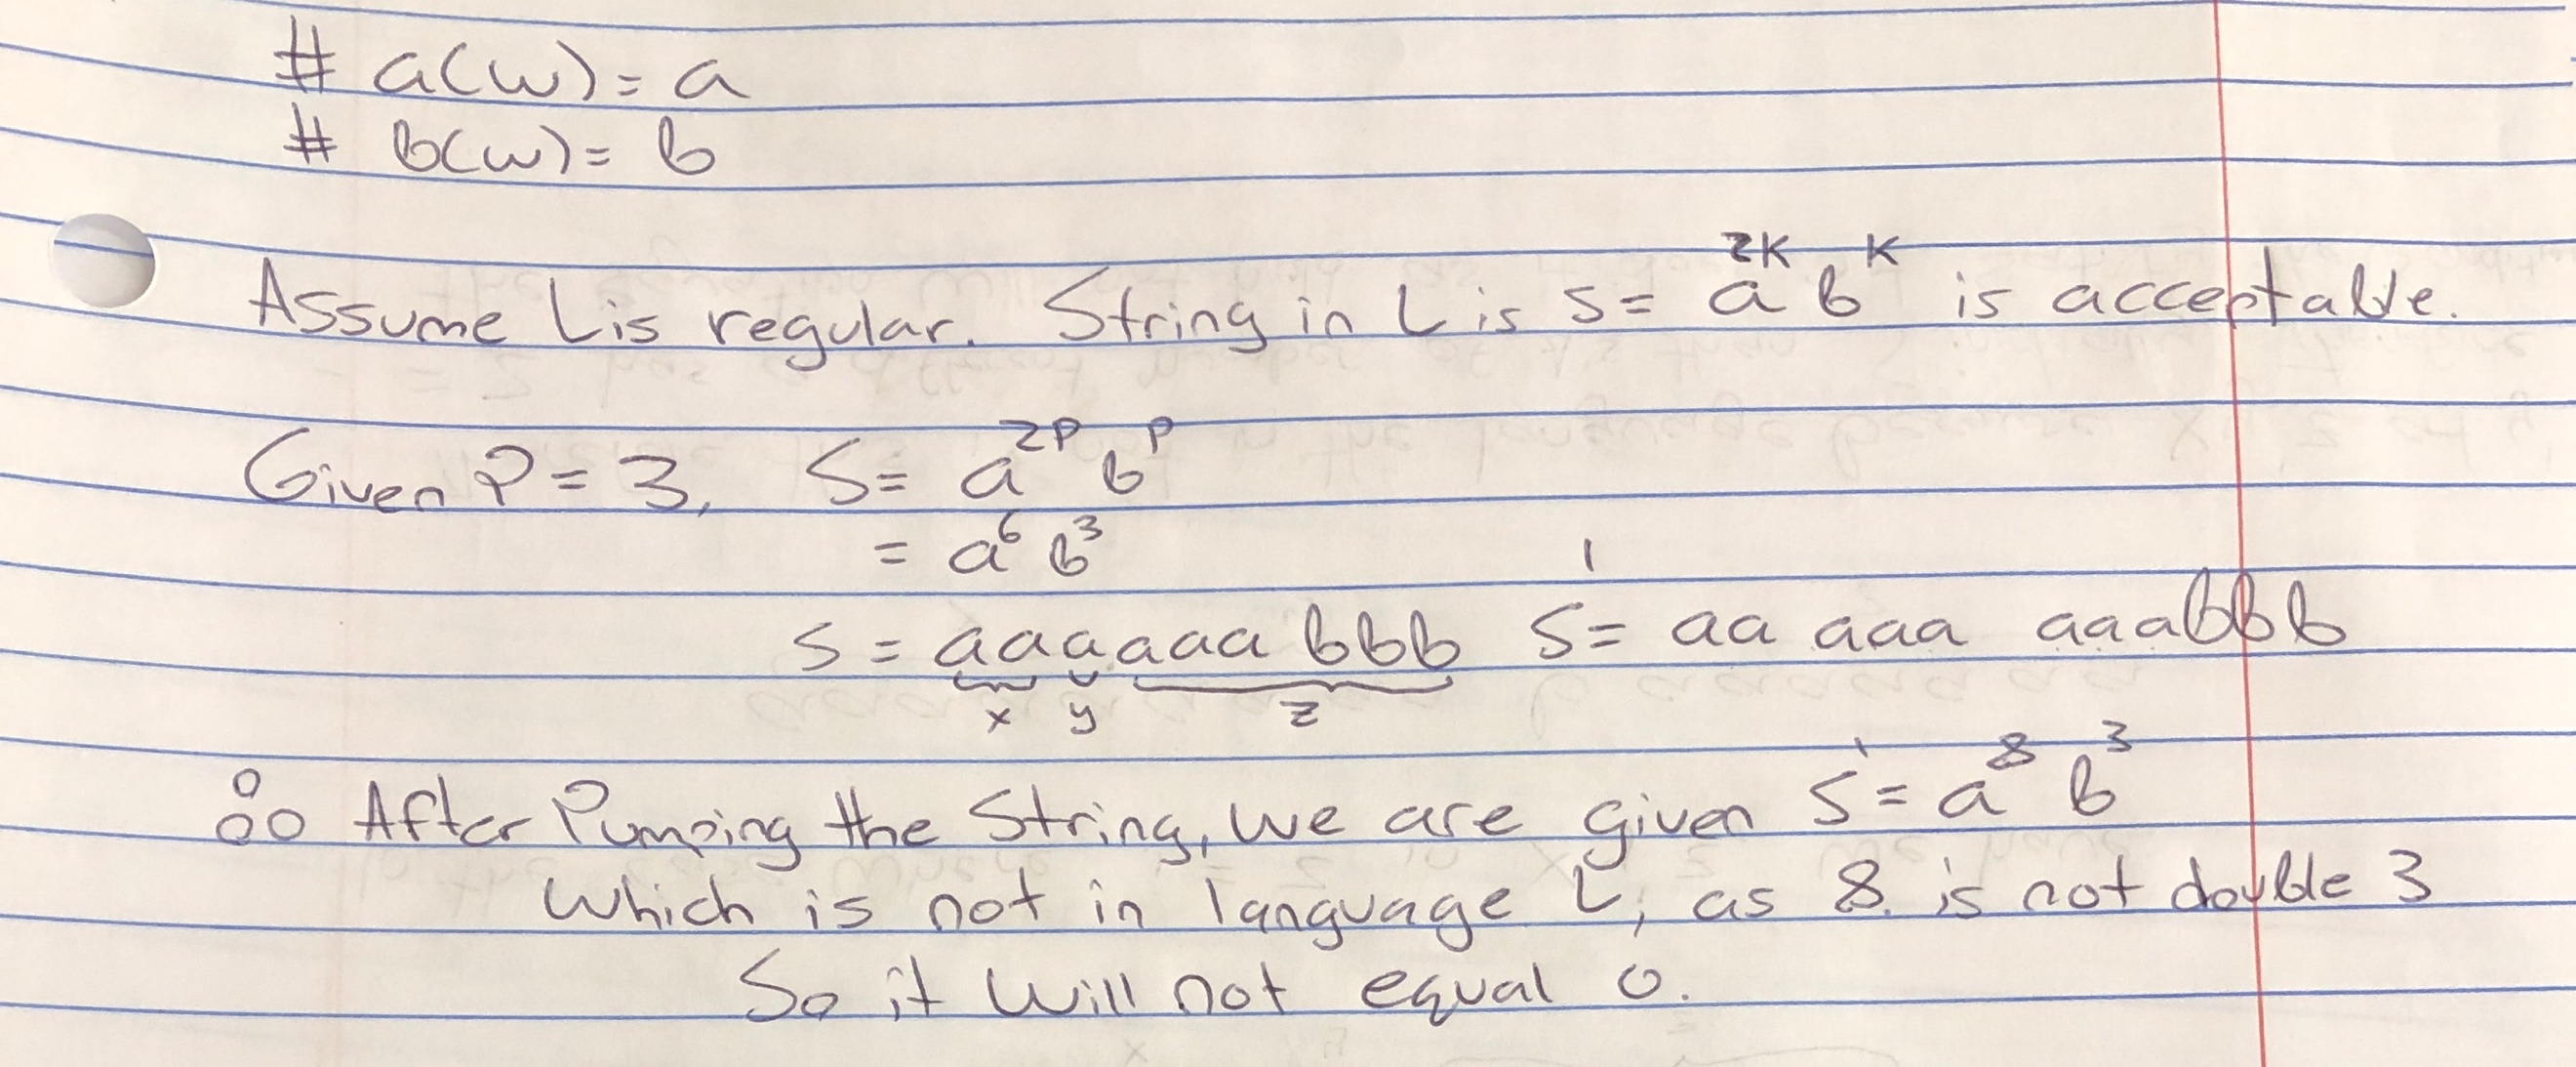 # a(w) = a
# b(w) = b
Assume L is regular. String in L is s = a^2K b^K is acceptable.
Given P = 3, S = a^2P b^P
= a^6 b^3
s = aaaaaa bbb S' = aa aaa aaabbb
x y z
∴ After Pumping the String, we are given S' = a^8 b^3
Which is not in language L, as 8 is not double 3
So it will not equal 0.